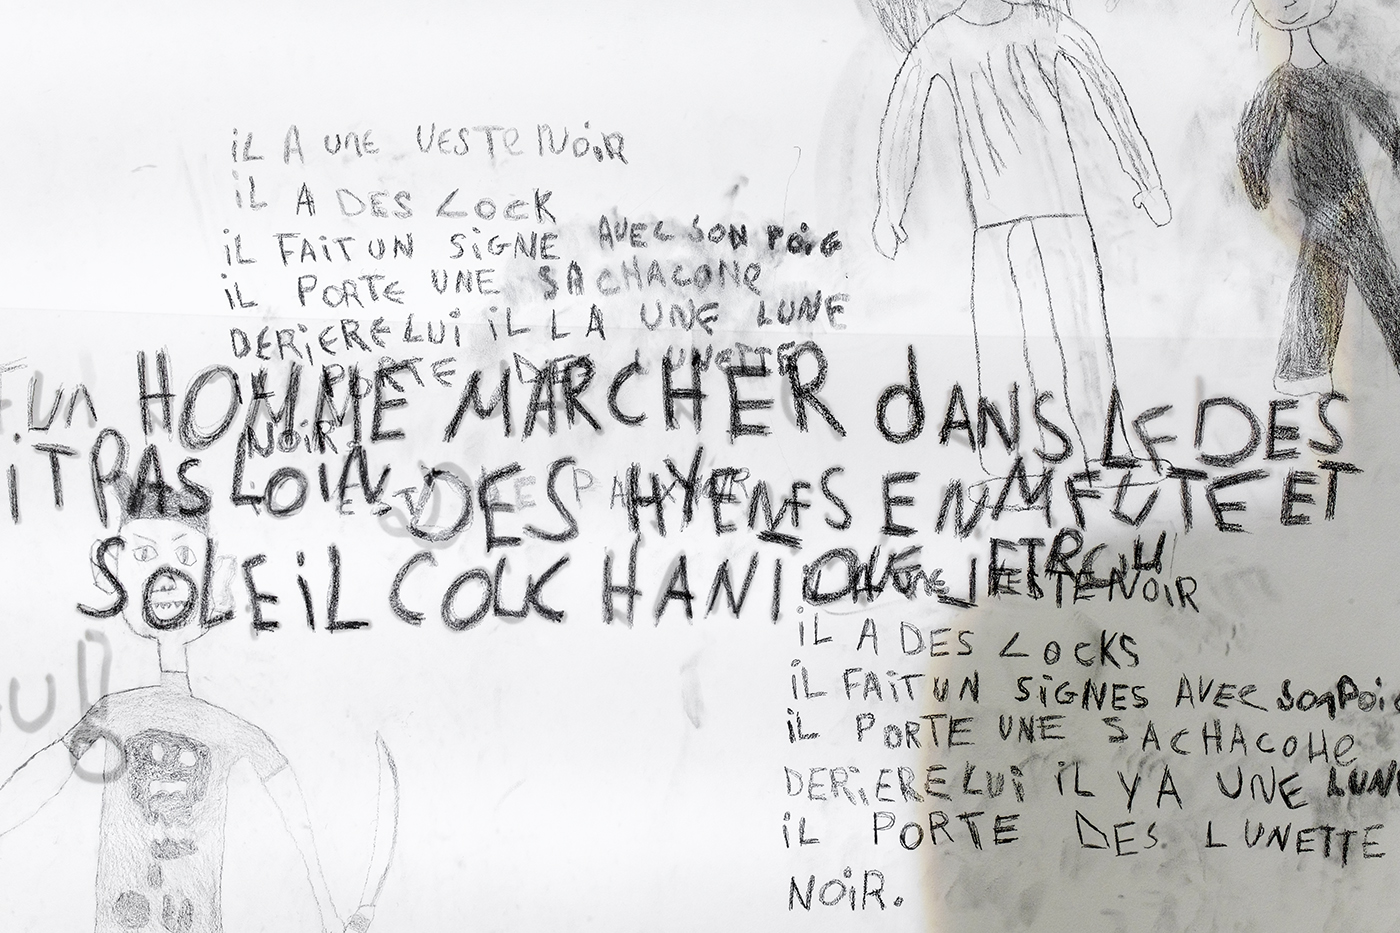 iL A UNE VESTE NOiR
iL A DES LOCK
iL FAiT UN SiGNE AVEC SON POiG
iL PORTE UNE SACHACONE
DERiERE LUi iL LA UNE LUNE
PORTE DES LUNETTE
NOiR
UN HOMME MARCHER dANS LE DES
iT PAS LOiN DES HYENES EN MEUTE ET
SOLEiL COUCHANT
VESTE NOiR
iL A DES LOCKS
iL FAiT UN SiGNES AVEC SON POiG
iL PORTE UNE SACHACOHE
DERiERE LUi iL Y A UNE LUN
iL PORTE DES LUNETTE
NOiR.